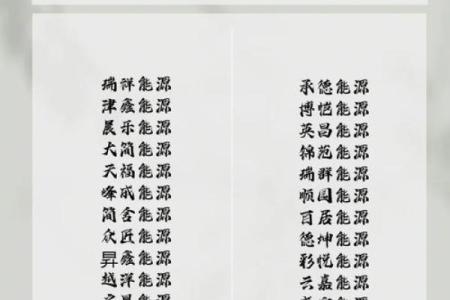 瑞祥能源
津鑫能源
晨乐能源
大简能源
天福能源
峰成能源
简奎能源
众匠能源
昇鑫能源
越洋能源
承德能源
博恺能源
英昌能源
锦苑能源
瑞群能源
顺园能源
百居能源
德坤能源
彩悦能源
云嘉能源